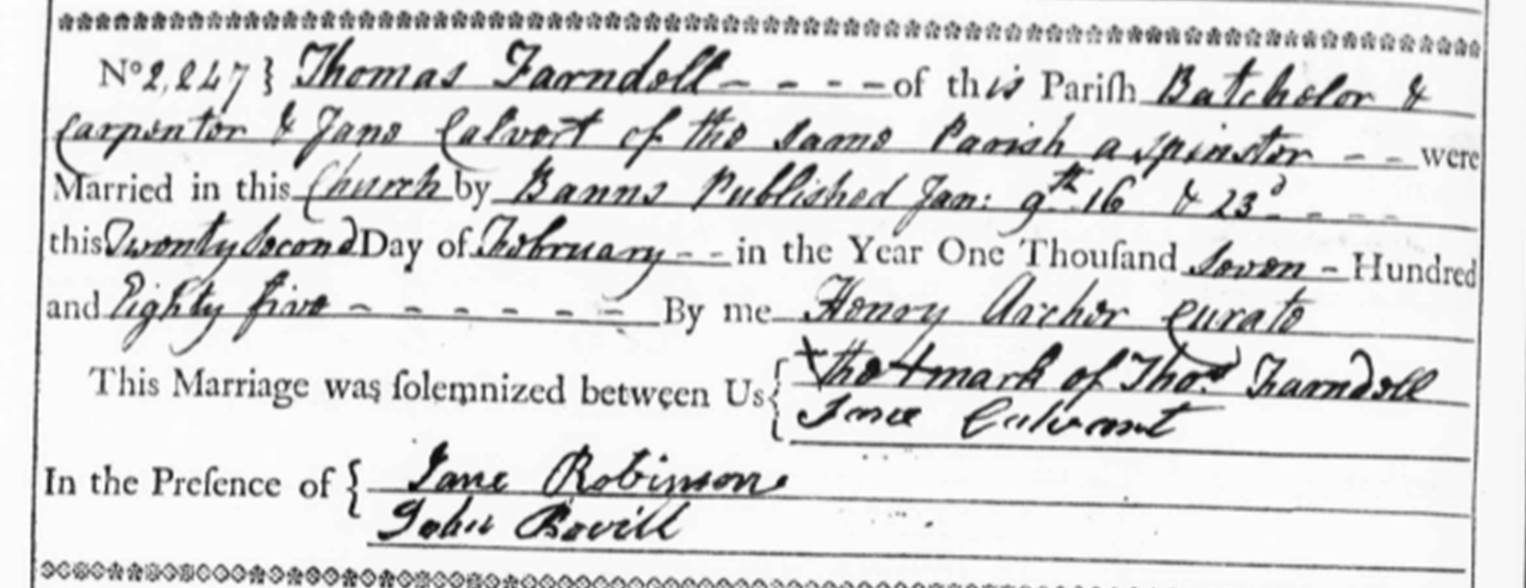 No 2,247 } Thomas Farndell - - - - of this Pariſh Batchelor &
Carpenter & Jane Calvert of the same Parish a spinster - - were
Married in this Church by Banns Published Jan: 9th 16 & 23d - - - -
this Twenty Second Day of February - - in the Year One Thouſand Seven - Hundred
and Eighty five - - - - - - By me Henry Archer Curate
This Marriage was ſolemnized between Us { The + mark of Thos Farndell
Jane Calvert
In the Preſence of { Jane Robinson
John Bovill